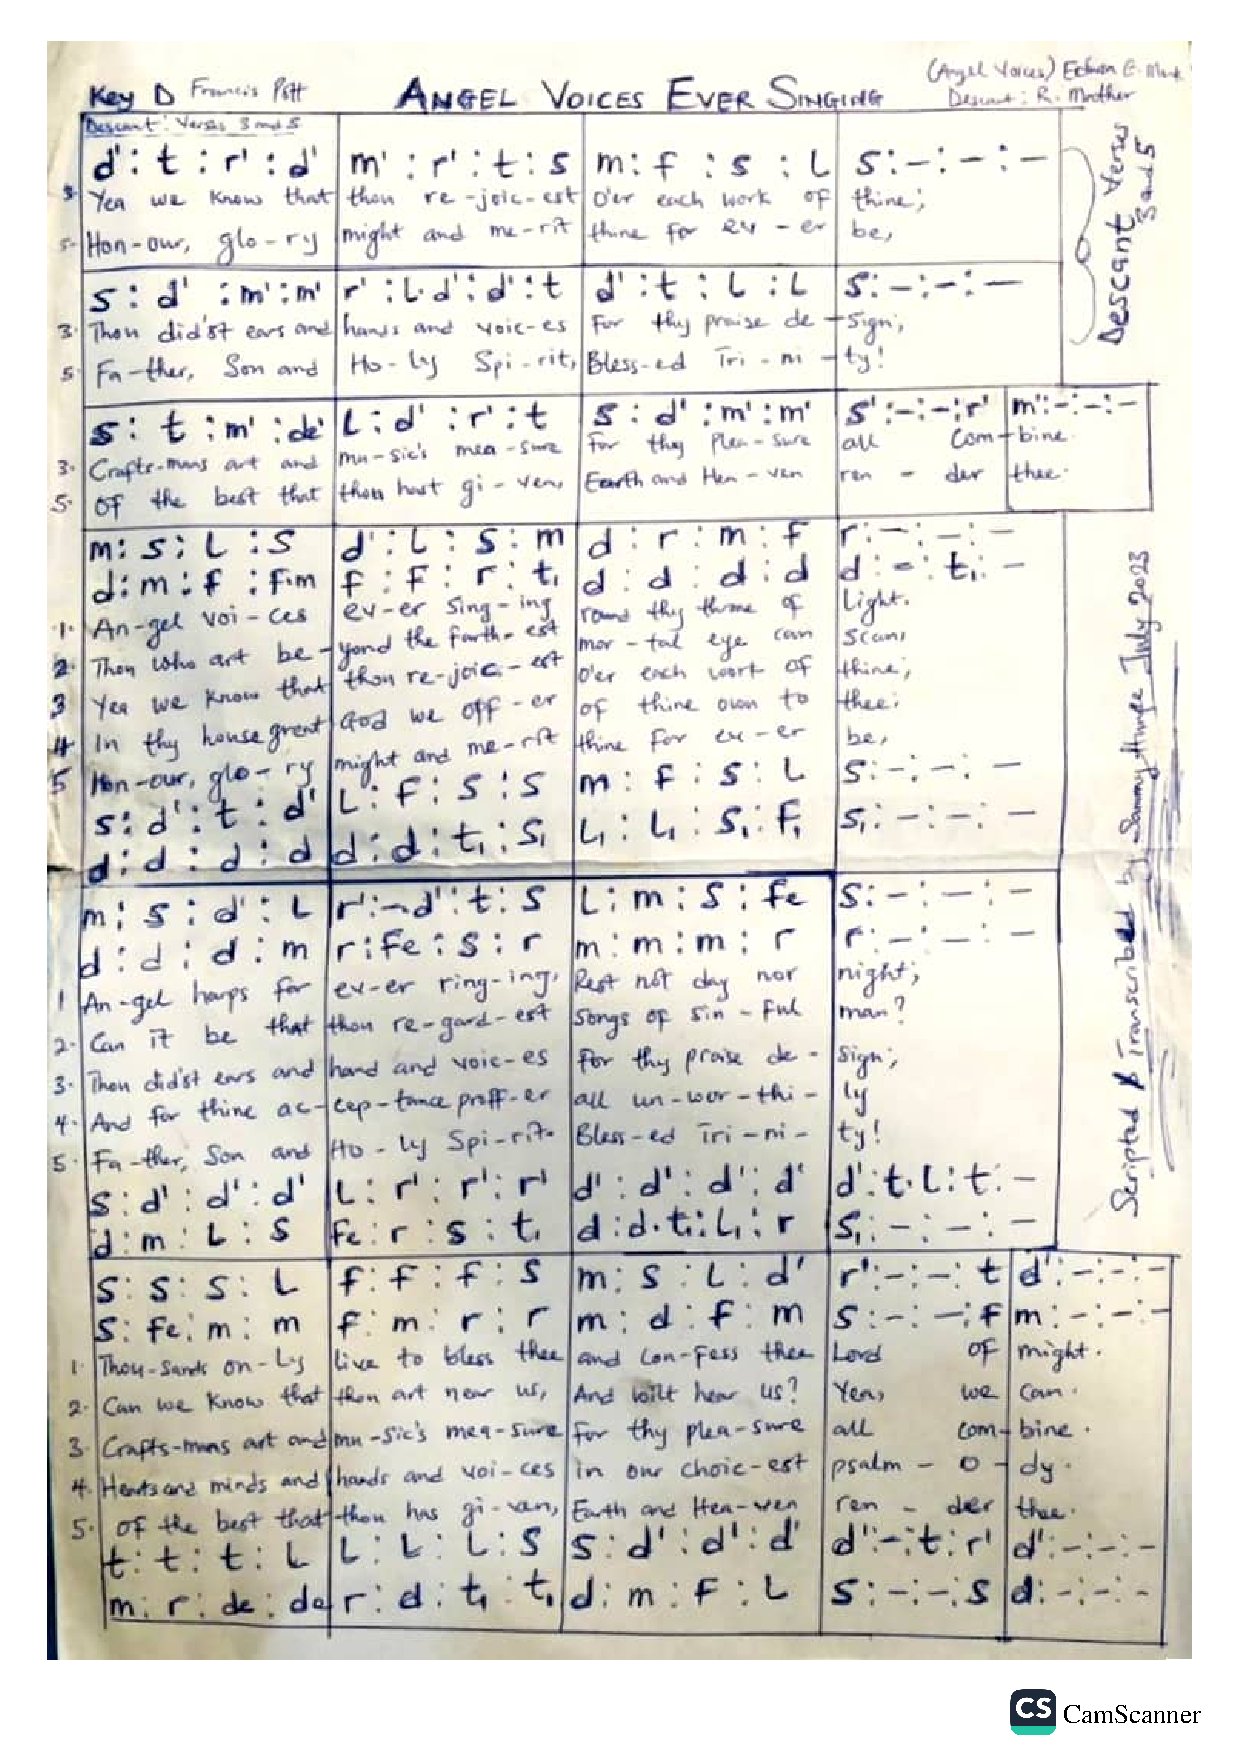 Key D Francis Pott ANGEL VOICES EVER SINGING (Angel Voices) Edwin G. Monk
Descant: R.
Descant: Verses 3 and 5
d' : t : r' : d' m' : r' : t : s m : f : s : L s : – : – : –
3. Yea we know that thou re-joic-est O'er each work of thine;
5. Hon-our, glo-ry might and me-rit thine for ev-er be,
s : d' : m' : m' r' : L. d' : d' : t d' : t : L : L s : – : – : –
3. Thou did'st ears and hands and voic-es For thy praise de-sign;
5. Fa-ther, Son and Ho-ly Spi-rit, Bless-ed Tri-ni-ty!
Descant Verses
3 and 5
s : t : m' : de' L : d' : r' : t s : d' : m' : m' s' : – : – : r' m' : – : – : –
3. Crafts-mans art and mu-sic's mea-sure For thy plea-sure all Com-bine.
5. Of the best that thou hast gi-ven, Earth and Hea-ven ren-der thee.
m : s : L : s d' : L : s : m d : r : m : f r : – : – : –
d : m : f : f.m f : f : r : t₁ d : d : d : d d : – : t₁ : –
1. An-gel voi-ces ev-er sing-ing round thy throne of Light.
2. Thou who art be-yond the farth-est mor-tal eye can scan,
3 Yea we know that thou re-joic-est O'er each work of thine;
4 In thy house great God we off-er of thine own to thee;
5 Hon-our, glo-ry might and me-rit thine for ev-er be,
s : d' : t : d' L : f : s : s m : f : s : L s : – : – : –
d : d : d : d d : d : t₁ : s₁ L₁ : L₁ : s₁ : f₁ s₁ : – : – : –
Scripted & Transcribed by Sammy July 2023
m : s : d' : L r' : – d' : t : s L : m : s : fe s : – : – : –
d : d : d : m r : fe : s : r m : m : m : r r : – : – : –
1 An-gel harps for ev-er ring-ing, Rest not day nor night;
2. Can it be that thou re-gard-est Songs of sin-ful man?
3. Thou did'st ears and hand and voic-es For thy praise de-sign;
4. And for thine ac-cep-tance proff-er all un-wor-thi-ly
5. Fa-ther, Son and Ho-ly Spi-rit. Bless-ed Tri-ni-ty!
s : d' : d' : d' L : r' : r' : r' d' : d' : d' : d' d' : t. L : t : –
d : m : L : s fe : r : s : t₁ d : d. t₁ : L₁ : r s₁ : – : – : –
s : s : s : L f : f : f : s m : s : L : d' r' : – : – : t d' : – : – : –
s : fe : m : m f : m : r : r m : d : f : m s : – : – : f m : – : – : –
1. Thou-sands on-ly live to bless thee and con-fess thee Lord of might.
2. Can we know that thou art near us, And wilt hear us? Yea, we can.
3. Crafts-mans art and mu-sic's mea-sure For thy plea-sure all com-bine.
4. Hearts and minds and hands and voi-ces in our choic-est psalm-o-dy.
5. Of the best that thou has gi-ven, Earth and Hea-ven ren-der thee.
t : t : t : L L : L : L : s s : d' : d' : d' d' : – : t : r' d' : – : – : –
m : r : de : de r : d : t₁ : t₁ d : m : f : L s : – : – : s d : – : – : –
CS CamScanner